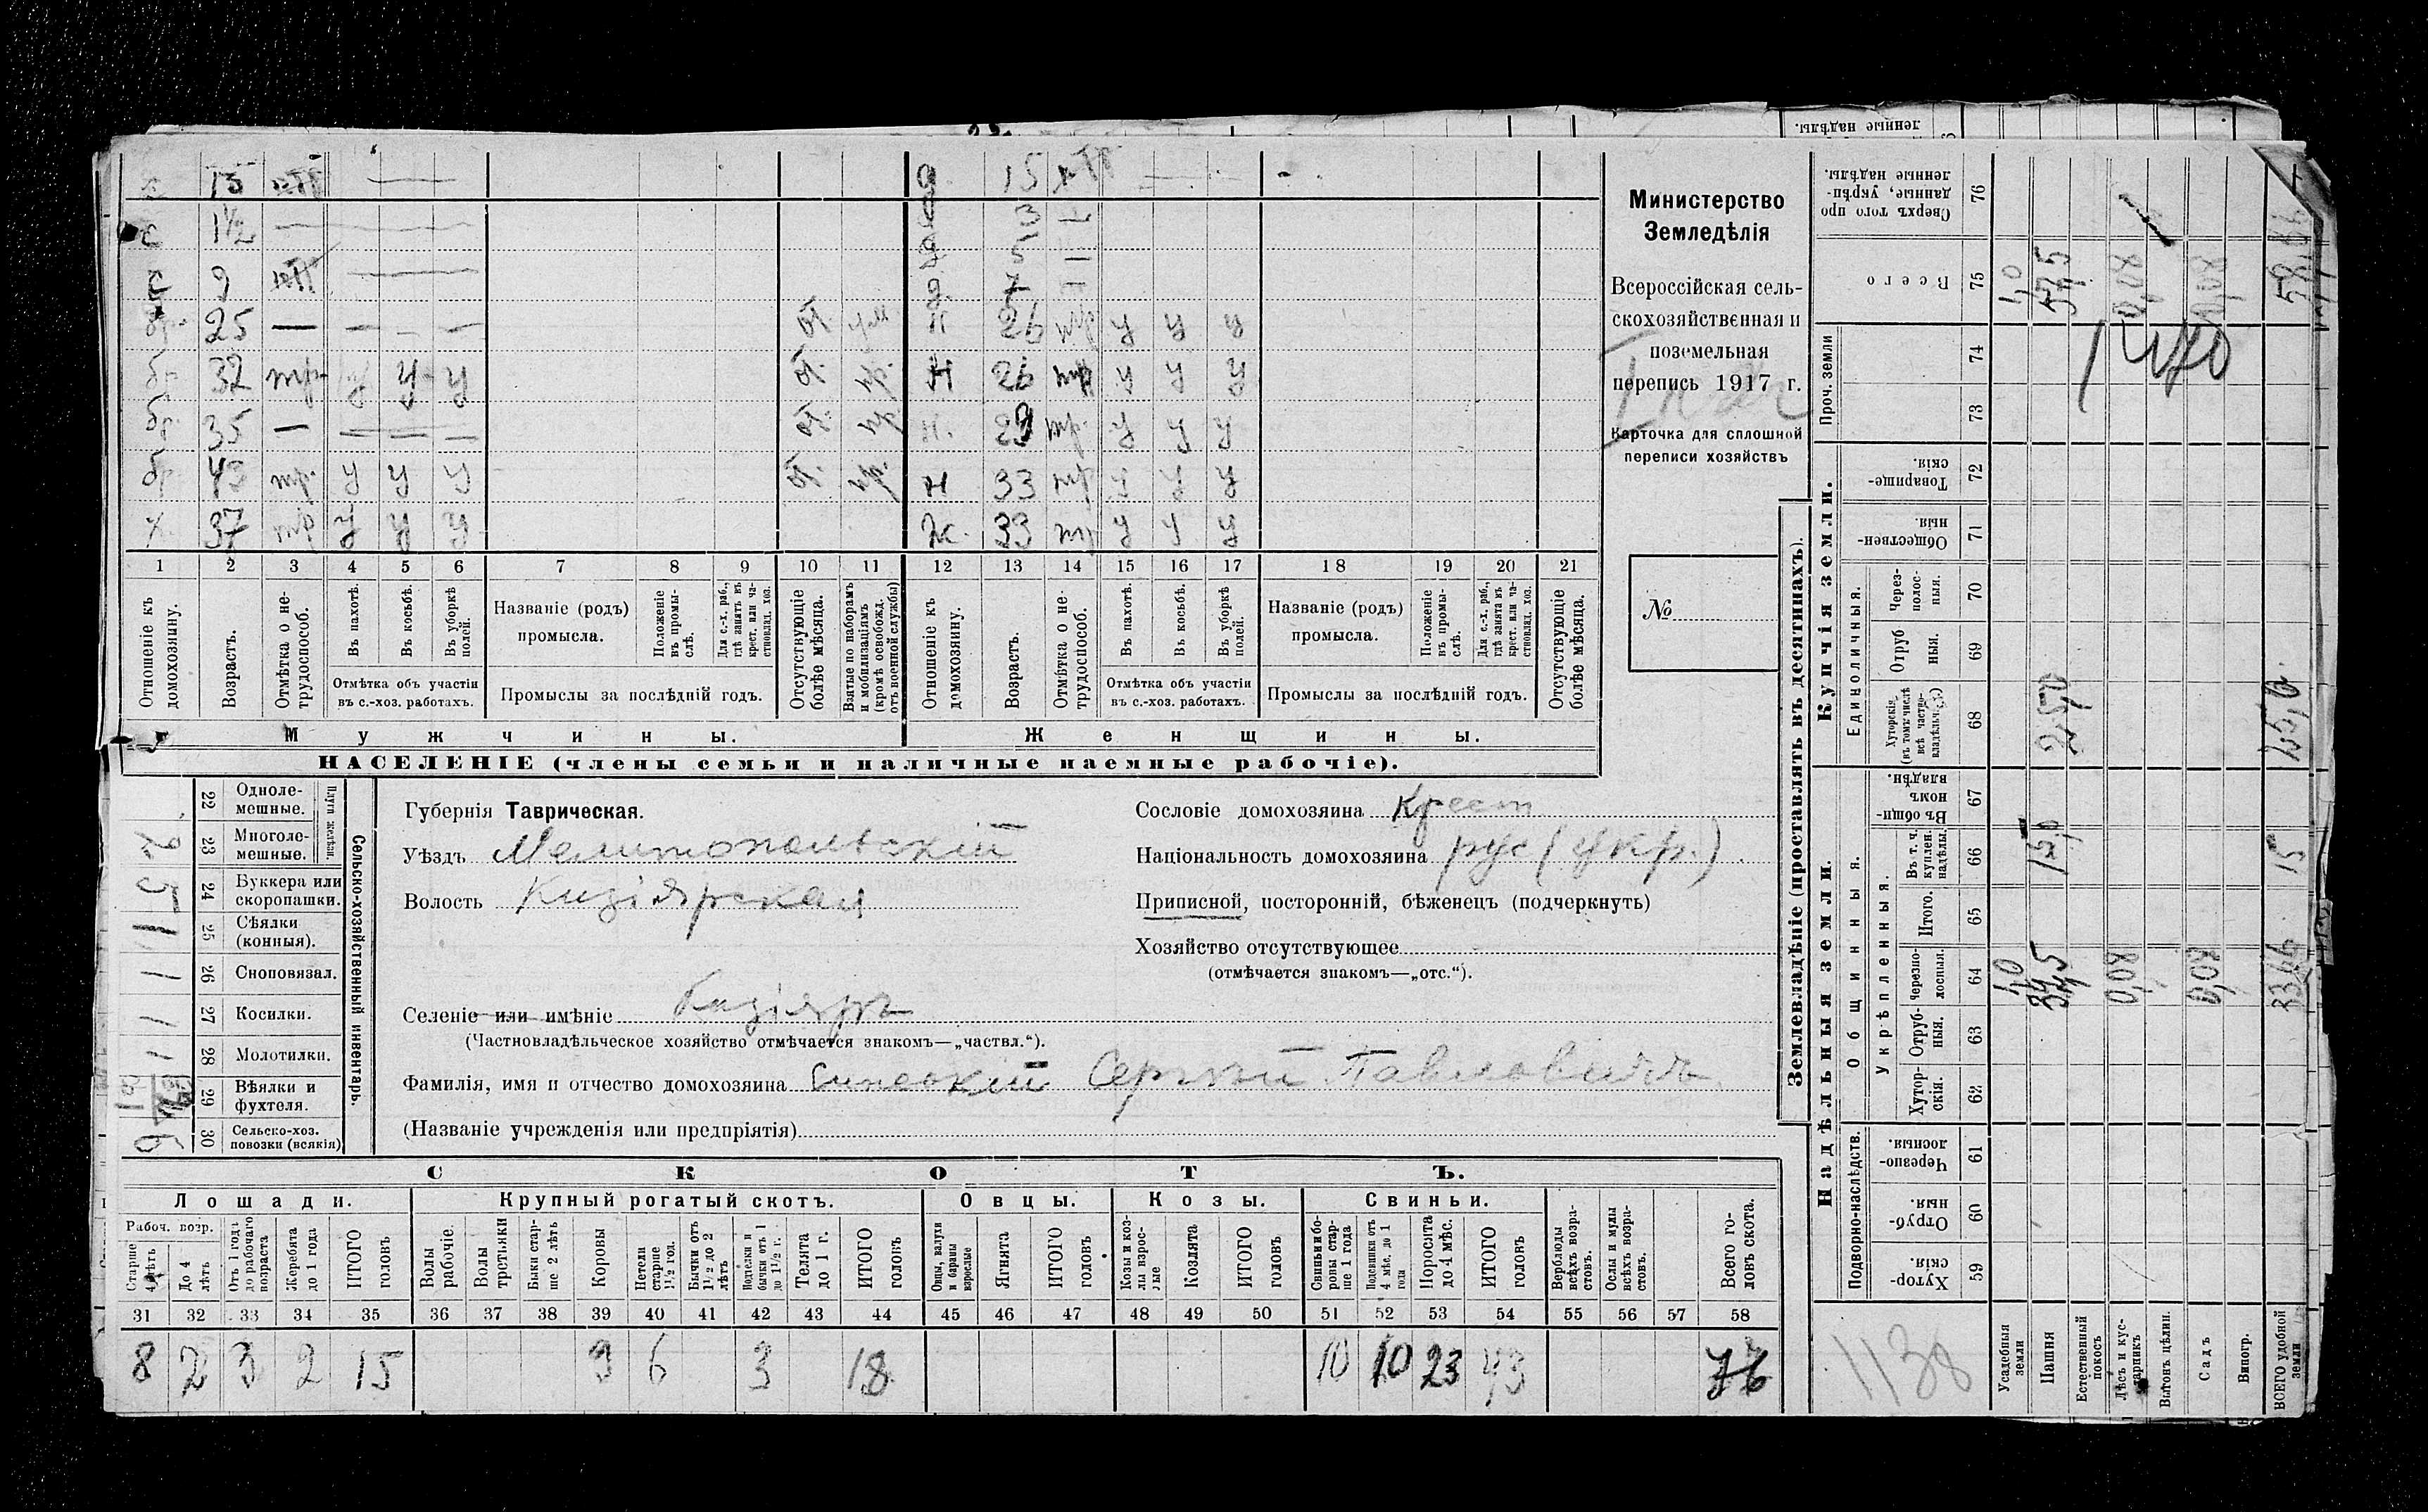 ленные надѣлы.
х 15 — д 15
с 1½ — 3
с 9 — 5
д. 7
бр. 25 — — — — от. н 26 тр у у у
бр 32 тр у у у от. пр. н 26 тр у у у
бр. 35 — — — — от. пр н. 29 тр. у у у
бр. 43 тр. у у у от. пр. н 33 тр у у у
х. 37 тр у у у ж. 33 тр у у у
1 2 3 4 5 6 7 8 9 10 11 12 13 14 15 16 17 18 19 20 21
Отношеніе къ домохозяину.
Возрастъ.
Отмѣтка о не-трудоспособ.
Въ пахотѣ.
Въ косьбѣ.
Въ уборкѣ полей.
Отмѣтка объ участіи
въ с.-хоз. работахъ.
Названіе (родъ)
промысла.
Положеніе въ промы-слѣ.
Для с.-х. раб., гдѣ занятъ въ крест. или ча-стновлад. хоз.
Промыслы за послѣдній годъ.
Отсутствующіе болѣе мѣсяца.
Взятые по наборамъ и мобилизаціямъ (кромѣ освобожд. отъ военной службы)
Отношеніе къ домохозяину.
Возрастъ.
Отмѣтка о не-трудоспособ.
Въ пахотѣ.
Въ косьбѣ.
Въ уборкѣ полей.
Отмѣтка объ участіи
въ с.-хоз. работахъ.
Названіе (родъ)
промысла.
Положеніе въ промы-слѣ.
Для с.-х. раб., гдѣ занята въ крест. или ча-стновлад. хоз.
Промыслы за послѣдній годъ.
Отсутствующіе болѣе мѣсяца.
Мужчины. Женщины.
НАСЕЛЕНІЕ (члены семьи и наличные наемные рабочіе).
Министерство
Земледѣлія
Всероссійская сель-
скохозяйственная и
поземельная
перепись 1917 г.
Карточка для сплошной
переписи хозяйствъ
№
Сельско-хозяйственный инвентарь.
Плуги желѣзн.
22 Однолемешные.
2 23 Многолемешные.
5 24 Буккера или скоропашки.
1 25 Сѣялки (конныя).
1 26 Сноповязал.
1 27 Косилки.
1 28 Молотилки.
29 Вѣялки и фухтеля.
30 Сельско-хоз. повозки (всякія)
Губернія Таврическая.
Уѣздъ Мелитопольскій
Волость Кизіярская
Селеніе или имѣніе Кизіяръ
(Частновладѣльческое хозяйство отмѣчается знакомъ—„частвл.“).
Фамилія, имя и отчество домохозяина Сергѣй Павловичъ
(Названіе учрежденія или предпріятія)
Сословіе домохозяина Крест
Національность домохозяина рус (укр.)
Приписной, посторонній, бѣженецъ (подчеркнуть)
Хозяйство отсутствующее
(отмѣчается знакомъ—„отс.“).
СКОТЪ.
Лошади. Крупный рогатый скотъ. Овцы. Козы. Свиньи.
Рабоч. возр.
Старше 4 лѣтъ
До 4 лѣтъ
Отъ 1 года до рабочаго возраста
Жеребята до 1 года
ИТОГО головъ
Волы рабочіе.
Волы третьяки
Быки стар-ше 2 лѣтъ
Коровы
Нетели старше 1½ год.
Бычки отъ 1½ до 2 лѣтъ
Подтелки и бычки отъ 1 до 1½ г.
Телята до 1 г.
ИТОГО головъ
Овцы, валухи и бараны взрослые
Ягнята
ИТОГО головъ
Козы и коз-лы взрос-лые
Козлята
ИТОГО головъ
Свиньи и бо-ровы стар-ше 1 года
Подсвинки отъ 4 мѣс. до 1 года
Поросята до 4 мѣс.
ИТОГО головъ
Верблюды всѣхъ возра-стовъ.
Ослы и мулы всѣхъ возра-стовъ.
Всего го-ловъ скота.
31 32 33 34 35 36 37 38 39 40 41 42 43 44 45 46 47 48 49 50 51 52 53 54 55 56 57 58
8 2 3 2 15 9 6 3 18 10 10 23 43 76
Землевладѣніе (проставлять въ десятинахъ).
Надѣльныя земли. Купчія земли. Проч. земли
Подворно-наслѣдств. Общинныя. Укрѣпленныя. Единоличныя.
Сверхъ того про данные, укрѣп-ленные надѣлы. 76
Всего 75 1,0 0,08 0,08
74
73
Товарище-скія. 72
Обществен-ныя. 71
Через-полос-ныя. 70
Отруб ныя. 69
Хуторскія (въ томъ числѣ всѣ частно-владѣльч.) 68 25,0 25,0
Въ общи-номъ владѣн. 67
Въ т. ч. куплен. надѣлы. 66 15,0 15
Итого. 65
Черезпо-лосныя. 64 1,0 34,5 0,08 0,08
Отруб-ныя. 63
Хутор-скія. 62
Черезпо-лосныя. 61
Отруб-ныя. 60
Хутор-скія. 59
1138
Усадебныя земли
Пашня
Естественный покосъ
Лѣсъ и кус-тарникъ
Выгонъ цѣлин.
Садъ
Виногр.
ВСЕГО удобной земли